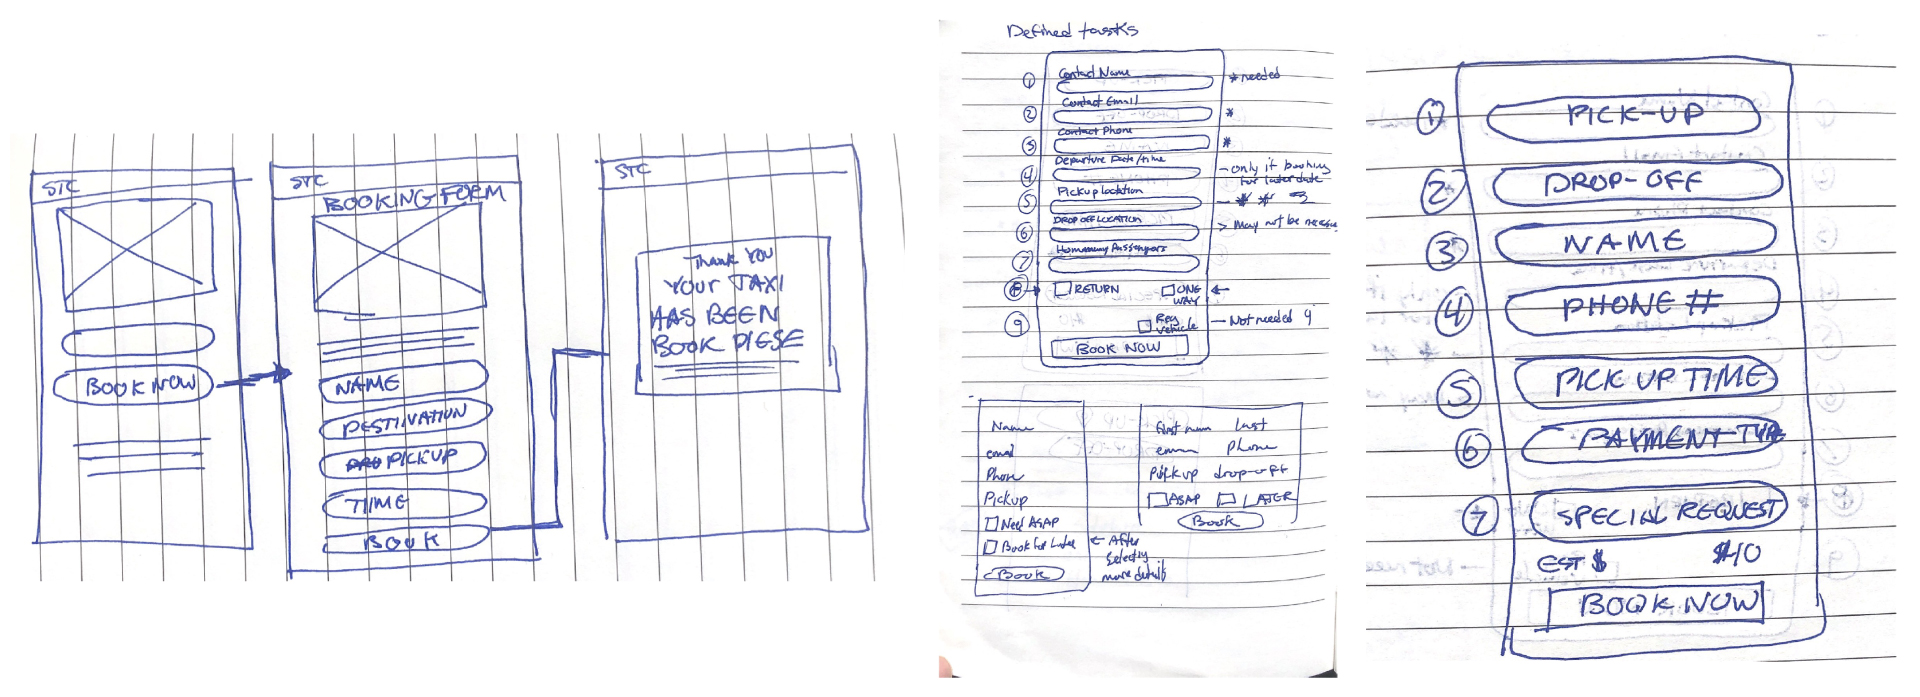 STC
BOOK NOW
STC
BOOKING FORM
NAME
DESTINATION
PICKUP
TIME
BOOK
STC
THANK YOU
YOUR TAXI
HAS BEEN
BOOK PLESE
Defined tasks
1 Contact Name * needed
2 Contact Email *
3 Contact Phone *
4 Departure Date/time - only if booking
for later date
5 Pickup location - * *
6 DROP OFF LOCATION > May not be
7 Passengers
8 RETURN ONE
WAY
9 Req
vehicle - Not needed
BOOK NOW
Name
email
Phone
Pickup
Need ASAP
Book for Later ← After
selecting
more details
Book
First Last
Phone
Pickup drop-off
ASAP LATER
Book
1 PICK-UP
2 DROP-OFF
3 NAME
4 PHONE #
5 PICK UP TIME
6 PAYMENT TYPE
7 SPECIAL REQUEST
EST $ $40
BOOK NOW